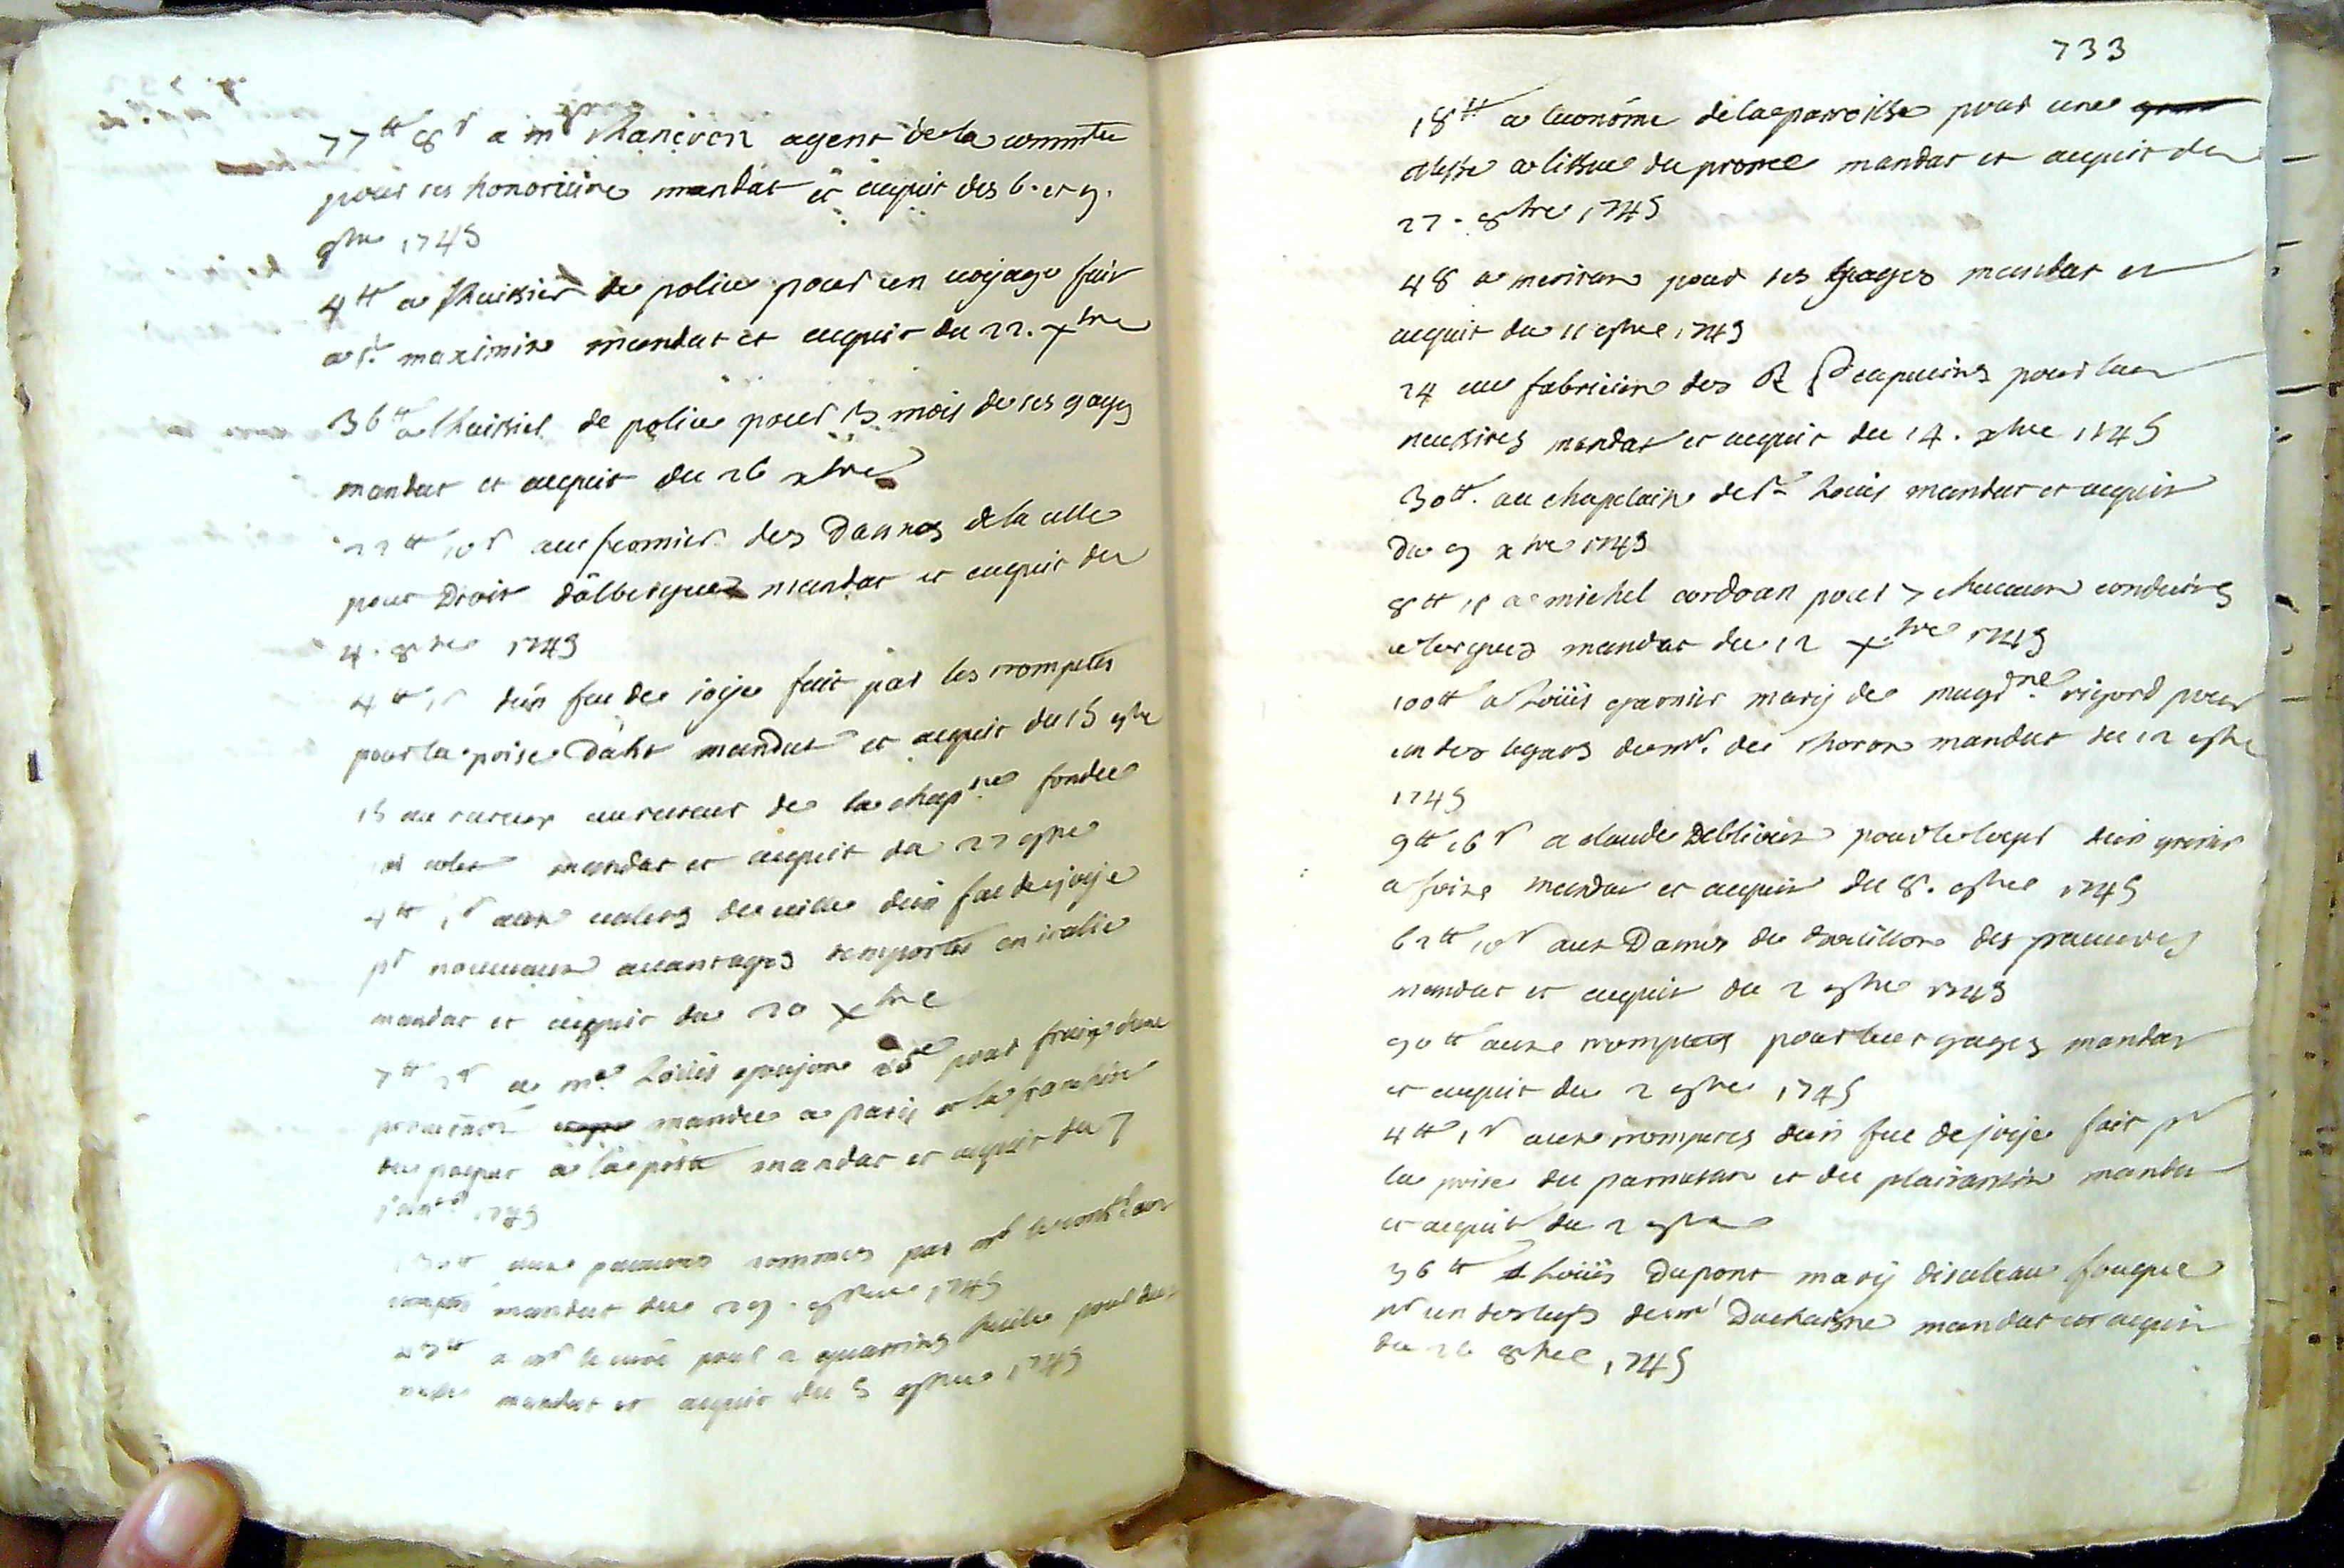 77tt 8s a mr agent de la commté
pour ses honoraire mandat et acquit des 6. et 9.
9bre 1745
4tt a lhuissier de police pour un voyage fait
a st maximin mandat et acquit du 22. xbre
36tt a lhuissier de police pour 3 mois de ses gages
mandat et acquit du 26 xbre
22tt 10s au fermier des Dames de la celle
pour Droit dalbergue mandat et acquit du
4. 8bre 1745
4tt 1s dun feu de joye fait par les trompetes
pour la prise Daht mandat et acquit du 15 9bre
15 au recteur de la chapnie fondée
mandat et acquit du 27 9bre
4tt 1s aux valets de ville dun feu de joye
pr nouveaux avantages remportés en italie
mandat et acquit du 20 xbre
7tt 2s a me Loüis goujon pour fraix dune
mandée a paris et la franchise
du paquet a la poste mandat et acquit du 7
1745
aux pauvres nommés par mr
mandat du 29. 9bre 1745
a mr le curé pour 2 quartins huile pour
mandat et acquit du 5 9bre 1745
733
18tt a leconóme de la parroisse pour une
Messe a lissue du prone mandat et acquit du
27. 8bre 1745
48 a meriton pour ses gages mandat et
acquit du 11 9bre 1745
24 au fabricien des RR PP capucins pour leur
necessités mandat et acquit du 14. xbre 1745
30tt. au chapelain de st Louis mandat et acquit
du 9 xbre 1745
8tt 1s a michel cordoan pour 7 chevaux conduits
a lorgues mandat du 12 xbre 1745
100tt a Loüis garnier mary de magdne rigord pour
un des legats de mr. de thoron mandat du 12 9bre
1745
9tt 16s a claude pour le loyer dun grenier
a foins mandat et acquit du 8. 9bre 1745
62tt 10s aux Dames du bouillon des pauvres
mandat et acquit du 2 9bre 1745
90tt aux trompetes pour leur gages mandat
et acquit du 2 9bre 1745
4tt 1s aux trompetes dun feu de joye fait pr
la prise du parmesan et du plaisantin mandat
et acquit du 2 9bre
36tt a Loüis Dupont mary disabeau fouque
pr un des legs de mr Duchaisne mandat et acquit
du 26 8bre 1745